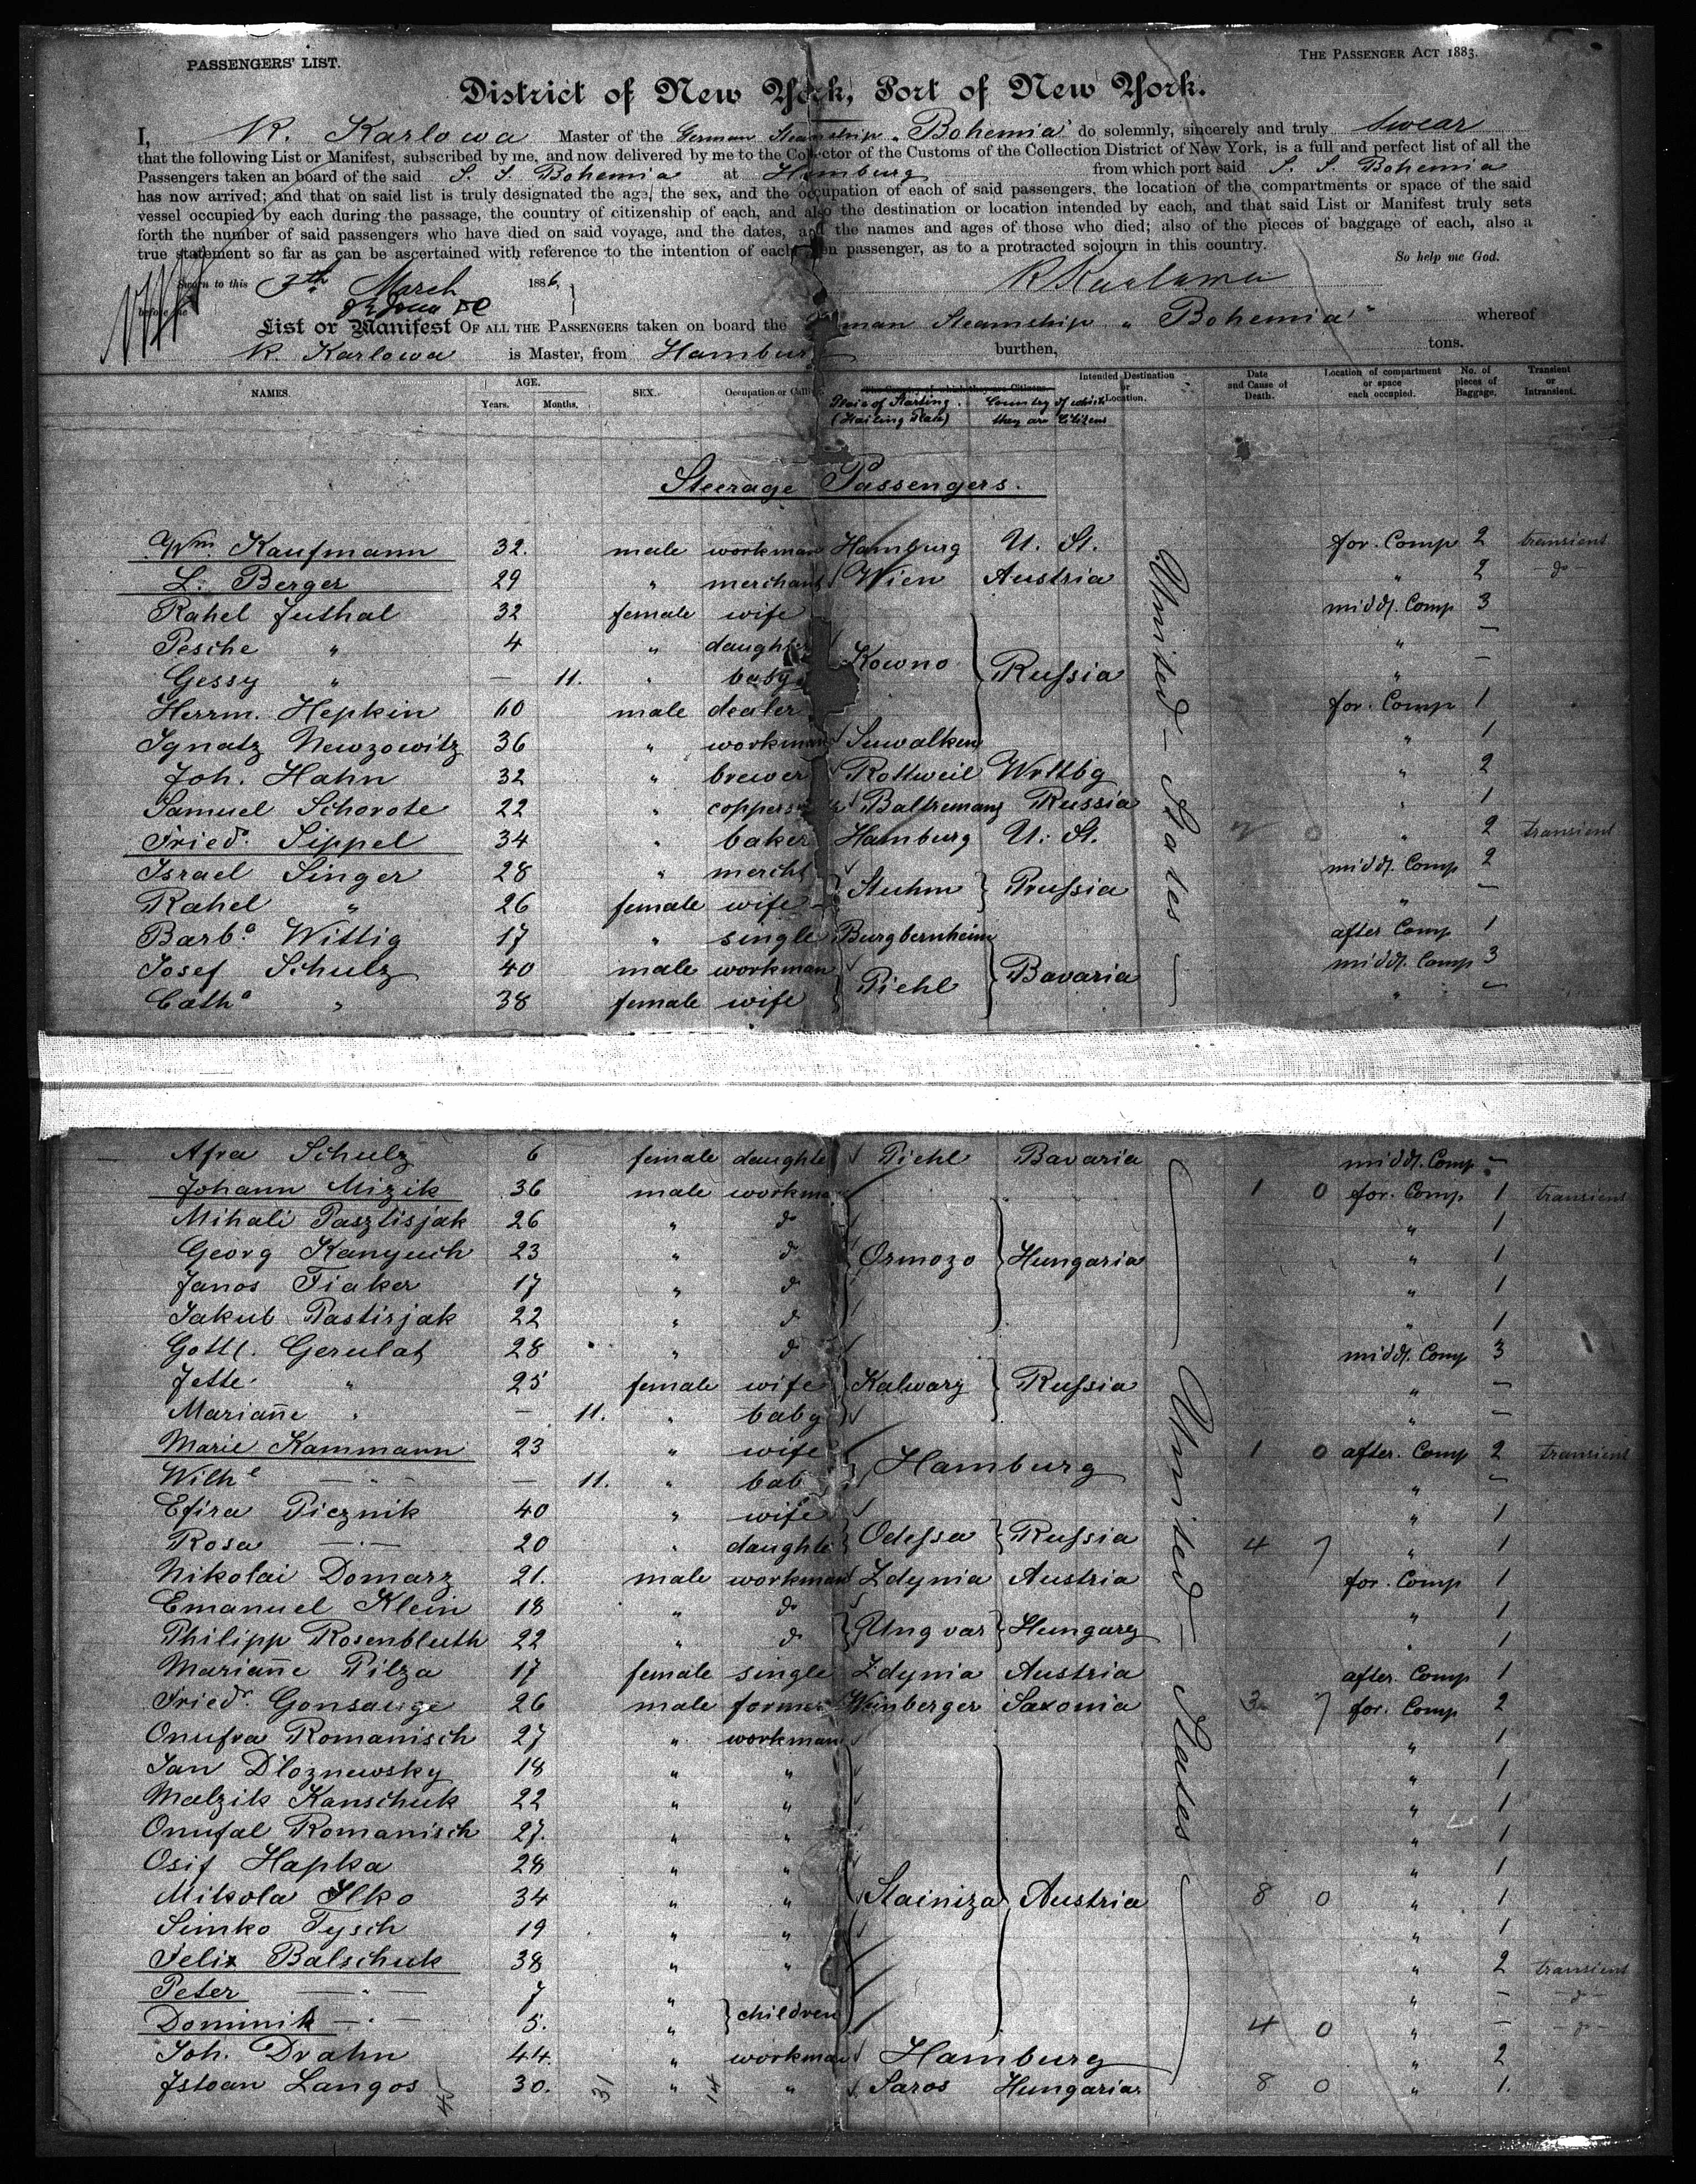 PASSENGERS' LIST.
THE PASSENGER ACT 1883.
District of New York, Port of New York.
I, R. Karlowa Master of the German Steamship "Bohemia" do solemnly, sincerely and truly swear
that the following List or Manifest, subscribed by me, and now delivered by me to the Collector of the Customs of the Collection District of New York, is a full and perfect list of all the
Passengers taken on board of the said S. S. Bohemia at Hamburg from which port said S. S. Bohemia
has now arrived; and that on said list is truly designated the age, the sex, and the occupation of each of said passengers, the location of the compartments or space of the said
vessel occupied by each during the passage, the country of citizenship of each, and also the destination or location intended by each, and that said List or Manifest truly sets
forth the number of said passengers who have died on said voyage, and the dates, and the names and ages of those who died; also of the pieces of baggage of each, also a
true statement so far as can be ascertained with reference to the intention of each alien passenger, as to a protracted sojourn in this country. So help me God.
Sworn to this March 1886, R Karlowa
before me
List or Manifest OF ALL THE PASSENGERS taken on board the German Steamship "Bohemia" whereof
R. Karlowa is Master, from Hamburg burthen, tons.
NAMES. AGE. Years. Months. SEX. Occupation or Calling The Country of which they are Citizens. Place of Starting (Hailing Place) Country of which they are Citizens Intended Destination or Location. Date and Cause of Death. Location of compartment or space each occupied. No. of pieces of Baggage. Transient or Intransient.
Steerage Passengers.
Wm. Kaufmann 32. male workman Hamburg U. St. for. Comp 2 transient
L. Berger 29 " merchant Wien Austria " 2 - do -
Rahel Juthal 32 female wife middl. Comp 3
Pesche " 4 " daughter Kowno Russia " —
Gessy " — 11. " baby " —
Herrm. Hepkin 60 male dealer for. Comp 1
Ignatz Newzowitz 36 " workman Suwalken " 1
Joh. Hahn 32 " brewer Rottweil Wrttbg " 2
Samuel Schorote 22 " coppersm Baltremanz Russia " 1
Fried. Sippel 34 " baker Hamburg U. St. 0 " 2 transient
Israel Singer 28 " mercht Stuhm Prussia middl. Comp 2
Rahel " 26 female wife " —
Barba. Wittig 17 " single Burgbernheim Bavaria after Comp 1
Josef Schulz 40 male workman Piehl middl. Comp 3
Catha " 38 female wife " —
United States
Afra Schulz 6 female daughte Piehl Bavaria middl. Comp —
Johann Mizik 36 male workman 1 0 for. Comp 1 transient
Mihali Pasztisjak 26 " do " 1
Georg Kanyuch 23 " do Ormozo Hungaria " 1
Janos Fiaker 17 " do " 1
Jakub Pastisjak 22 " do " 1
Gottl. Gerulat 28 " do middl. Comp 3
Jette " 25 female wife Kalwary Russia " —
Mariañe " — 11. " baby " —
Marie Kammann 23 " wife Hamburg 1 0 after. Comp 2 transient
Wilhe — " — — 11. " bab " —
Efira Picznik 40 " wife " 1
Rosa — " — 20 " daughte Odessa Russia 4 7 " 1
Nikolai Domarz 21. male workman Zdynia Austria for. Comp 1
Emanuel Klein 18 " do " 1
Philipp Rosenbluth 22 " do Ungvar Hungary " 1
Mariañe Pilza 17 female single Zdynia Austria after. Comp 1
Fried. Gonsauge 26 male former Weinberger Saxonia 3 7 for. Comp 2
Onufra Romanisch 27 " workman " 1
Jan Dloznewsky 18 " " " 1
Malzik Kanschuk 22 " " " 1
Onufal Romanisch 27. " " " 1
Osif Hapka 28 " " " 1
Mikola Ilko 34 " " Stainiza Austria 8 0 " 1
Simko Tysch 19 " " " 1
Felix Balschuk 38 " " " 2 transient
Peter — " — 7 " children " — - do -
Dominik — " — 5. " 4 0 " — - do -
Joh. Drahn 44. " workman Hamburg " 2
Istvan Langos 30. " " Saros Hungaria. 8 0 " 1.
United States
45 31 14